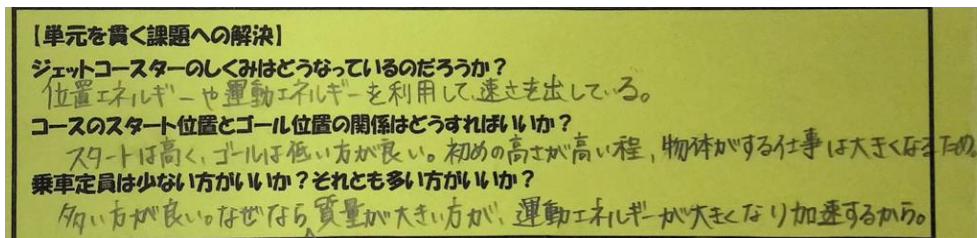 【単元を貫く課題への解決】
ジェットコースターのしくみはどうなっているのだろうか?
位置エネルギーや運動エネルギーを利用して、速さを出している。
コースのスタート位置とゴール位置の関係はどうすればいいか?
スタートは高く、ゴールは低い方が良い。初めの高さが高い程、物体がする仕事は大きくなるため。
乗車定員は少ない方がいいか?それとも多い方がいいか?
多い方が良い。なぜなら質量が大きい方が、運動エネルギーが大きくなり加速するから。